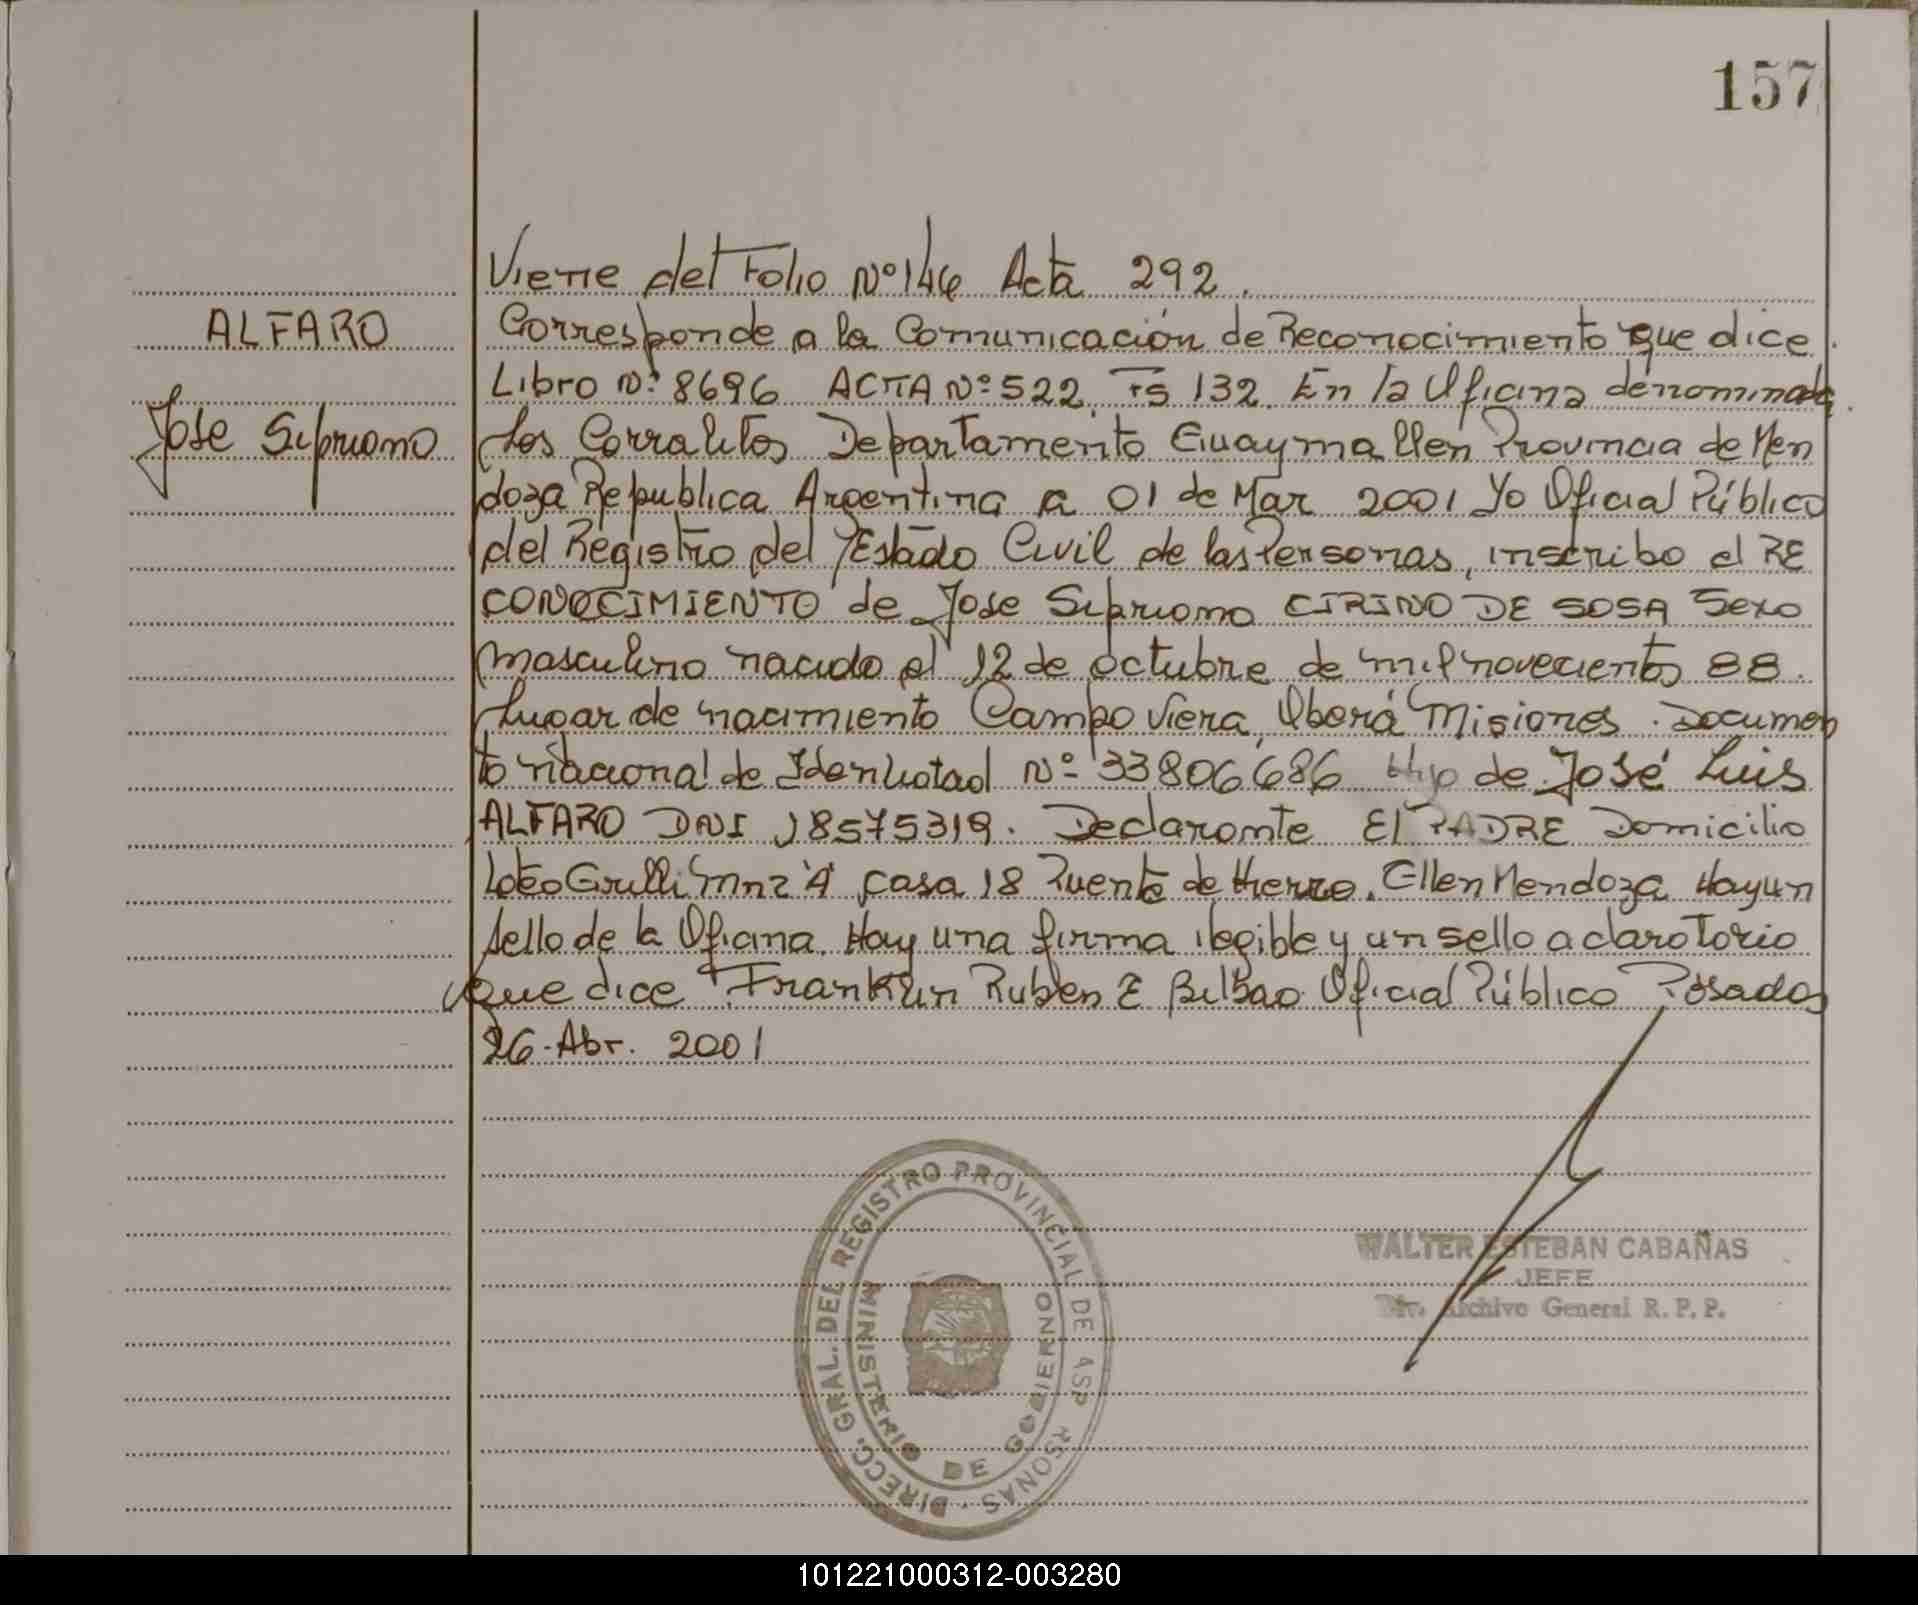 157
Viene del Folio Nº 146 Acta 292.
ALFARO
Corresponde a la Comunicación de Reconocimiento que dice.
Libro Nº 8696 ACTA Nº 522. Fs 132. En la Oficina denominada
Jose Sipriano
Los Corralitos Departamento Guaymallen Provincia de Men
doza Republica Argentina a 01 de Mar 2001 Yo Oficial Público
del Registro del Estado Civil de las Personas, inscribo el RE
CONOCIMIENTO de Jose Sipriano CIRINO DE SOSA Sexo
masculino nacido el 12 de octubre de mil novecientos 88.
Lugar de nacimiento Campo Viera, Oberá Misiones. Documen
to nacional de Identidad Nº 33806686 Hijo de José Luis
ALFARO DNI 18575319. Declarante El PADRE Domicilio
Loteo Grulli Mnz "A" casa 18 Puente de Hierro. Gllen Mendoza Hay un
sello de la Oficina. Hay una firma ilegible y un sello aclaratorio
que dice Franklin Ruben E Bilbao Oficial Público Posadas
26. Abr. 2001
DIRECC. GRAL. DEL REGISTRO PROVINCIAL DE ASP RSONAS
MINISTERIO DE GOBIERNO
WALTER ESTEBAN CABAÑAS
JEFE
Div. Archivo General R. P. P.
101221000312-003280